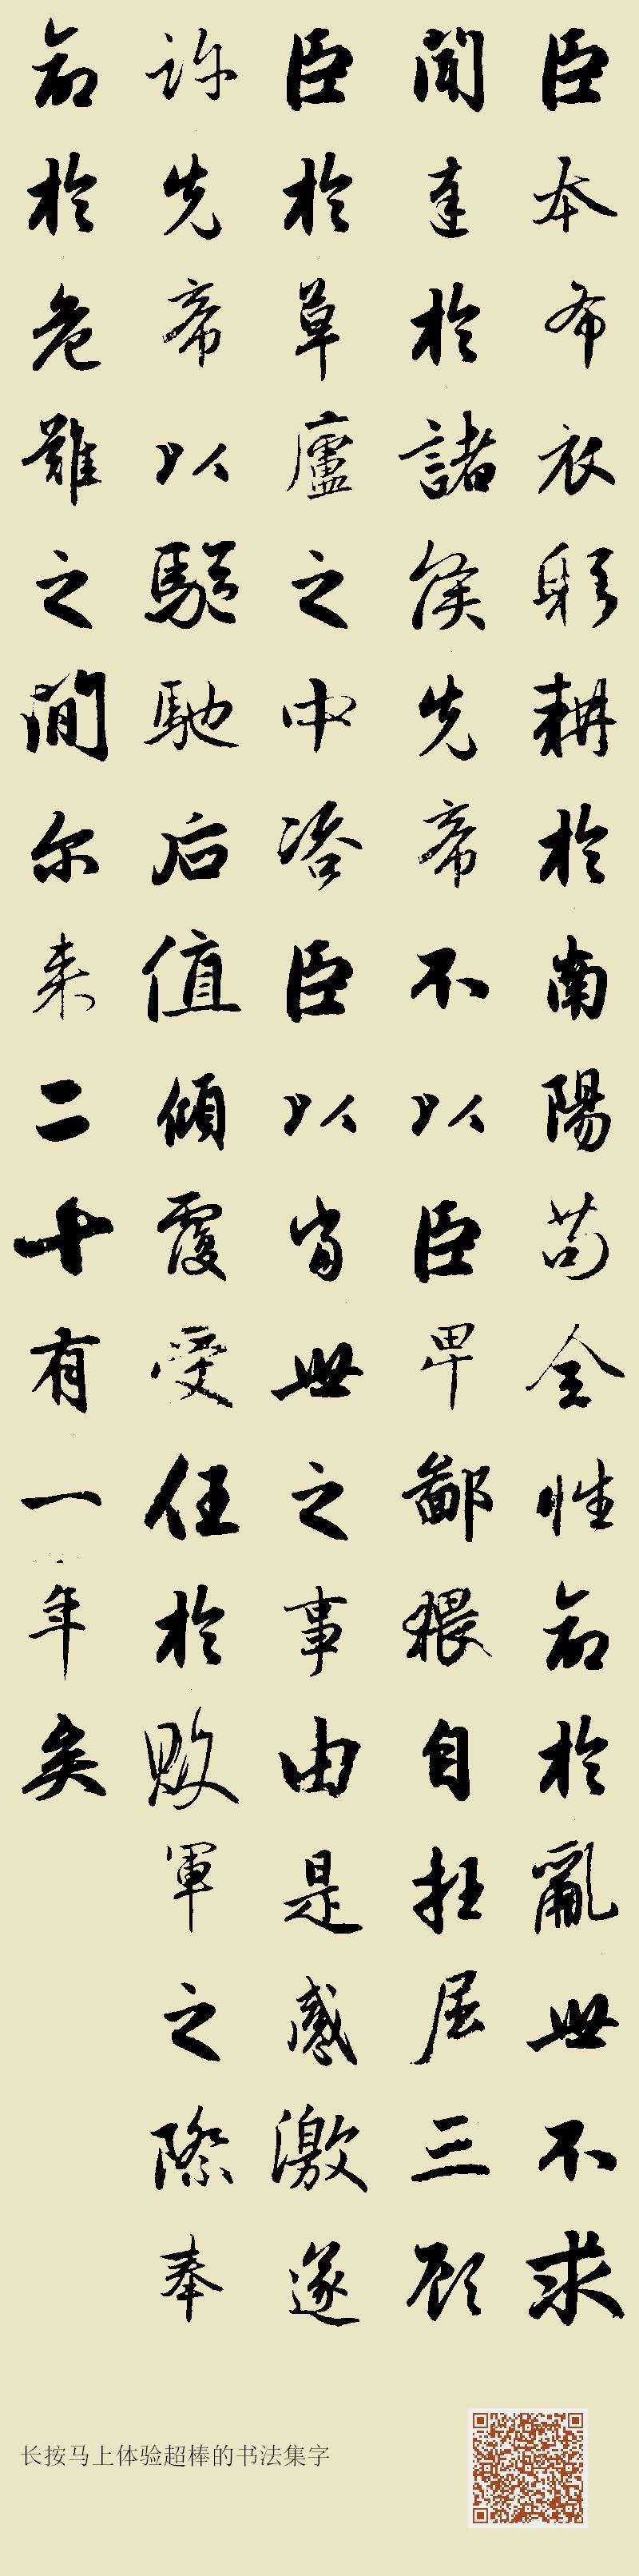 臣本布衣躬耕於南陽苟全性命於亂世不求
聞達於諸侯先帝不以臣卑鄙猥自枉屈三顧
臣於草廬之中咨臣以當世之事由是感激遂
許先帝以驅馳后值傾覆受任於敗軍之際奉
命於危難之間尔来二十有一年矣
长按马上体验超棒的书法集字